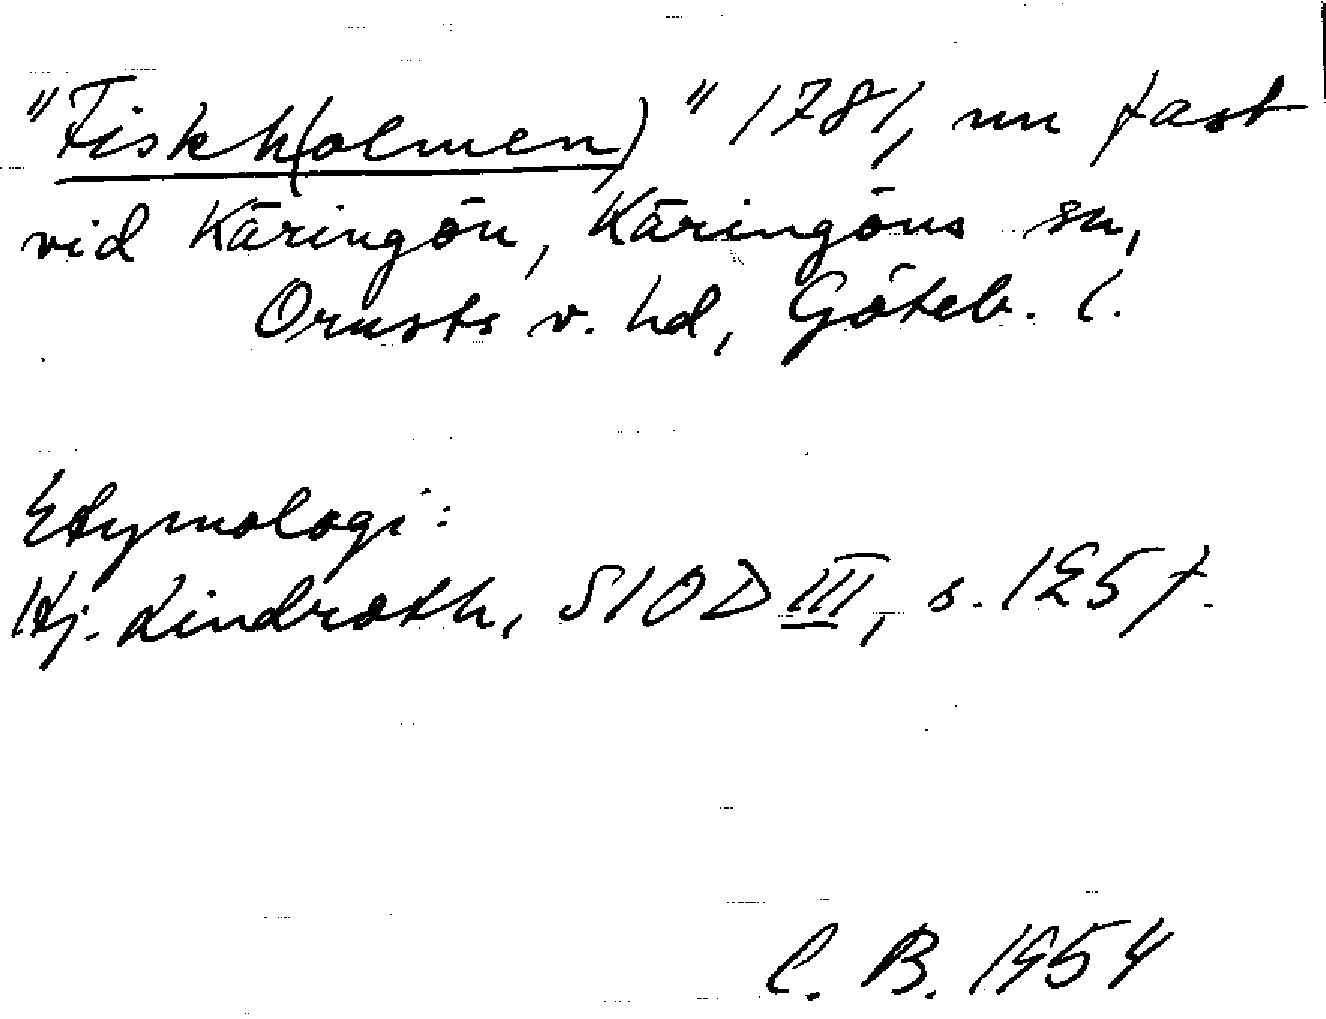 "Fiskh(olmen)" 1781, nu fast
vid Käringön, Käringöns sn,
Orusts v. hd, Göteb. l.
Etymologi:
Hj. Lindroth, SIOD III, s. 125 f.
C. B. 1954